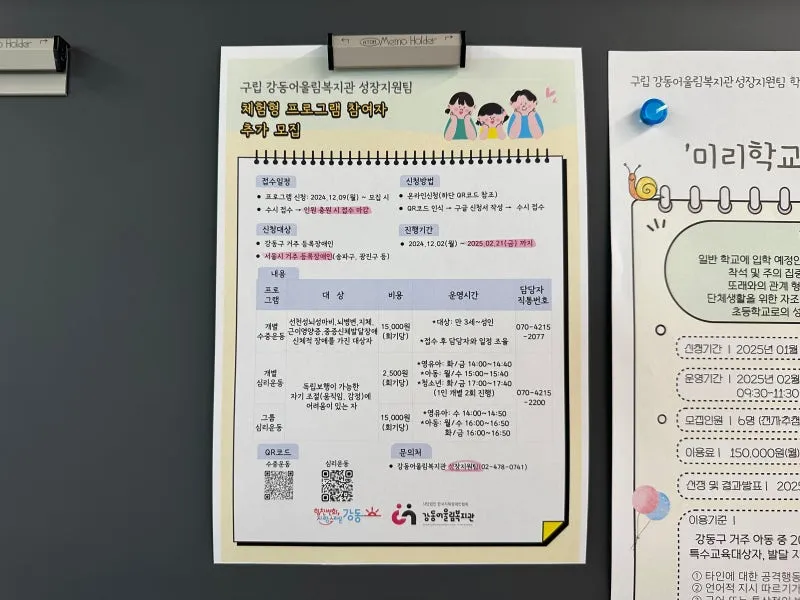 Memo Holder
Memo Holder
구립 강동어울림복지관 성장지원팀
체험형 프로그램 참여자
추가 모집
접수일정
프로그램 신청: 2024.12.09(월) ~ 모집 시
수시 접수 → 인원 충원 시 접수 마감
신청방법
온라인신청(하단 QR코드 참조)
QR코드 인식 → 구글 신청서 작성 → 수시 접수
신청대상
강동구 거주 등록장애인
서울시 거주 등록장애인(송파구, 광진구 등)
진행기간
2024.12.02(월) ~ 2025.02.21(금) 까지
내용
프로그램 대 상 비용 운영시간 담당자 직통번호
개별 수중운동
선천성뇌성마비,뇌병변,지체,
근이영양증,중증신체발달장애
신체적 장애를 가진 대상자
15,000원
(회기당)
*대상: 만 3세~성인
*접수 후 담당자와 일정 조율
070-4215
-2077
개별
심리운동
독립보행이 가능한
자기 조절(움직임, 감정)에
어려움이 있는 자
2,500원
(회기당)
*영유아: 화/금 14:00~14:40
*아동: 월/수 15:00~15:40
*청소년: 화/금 17:00~17:40
(1인 개별 2회 진행)
070-4215
-2200
그룹
심리운동
15,000원
(회기당)
*영유아: 수 14:00~14:50
*아동: 월/수 16:00~16:50
화/금 16:00~16:50
QR코드
수중운동
심리운동
문의처
강동어울림복지관 성장지원팀(02-478-0741)
강동
강동어울림복지관
구립 강동어울림복지관 성장지원팀 학
'미리학교
일반 학교에 입학 예정인
착석 및 주의 집중
또래와의 관계 형
단체생활을 위한 자조
초등학교로의 성
신청기간 | 2025년 01월
운영기간 | 2025년 02월
09:30-11:30
모집인원 | 6명
이용료 | 150,000원(월)
선정 및 결과발표 | 202
이용기준 |
강동구 거주 아동 중 20
특수교육대상자, 발달 지
① 타인에 대한 공격행동
② 언어적 지시 따르기가